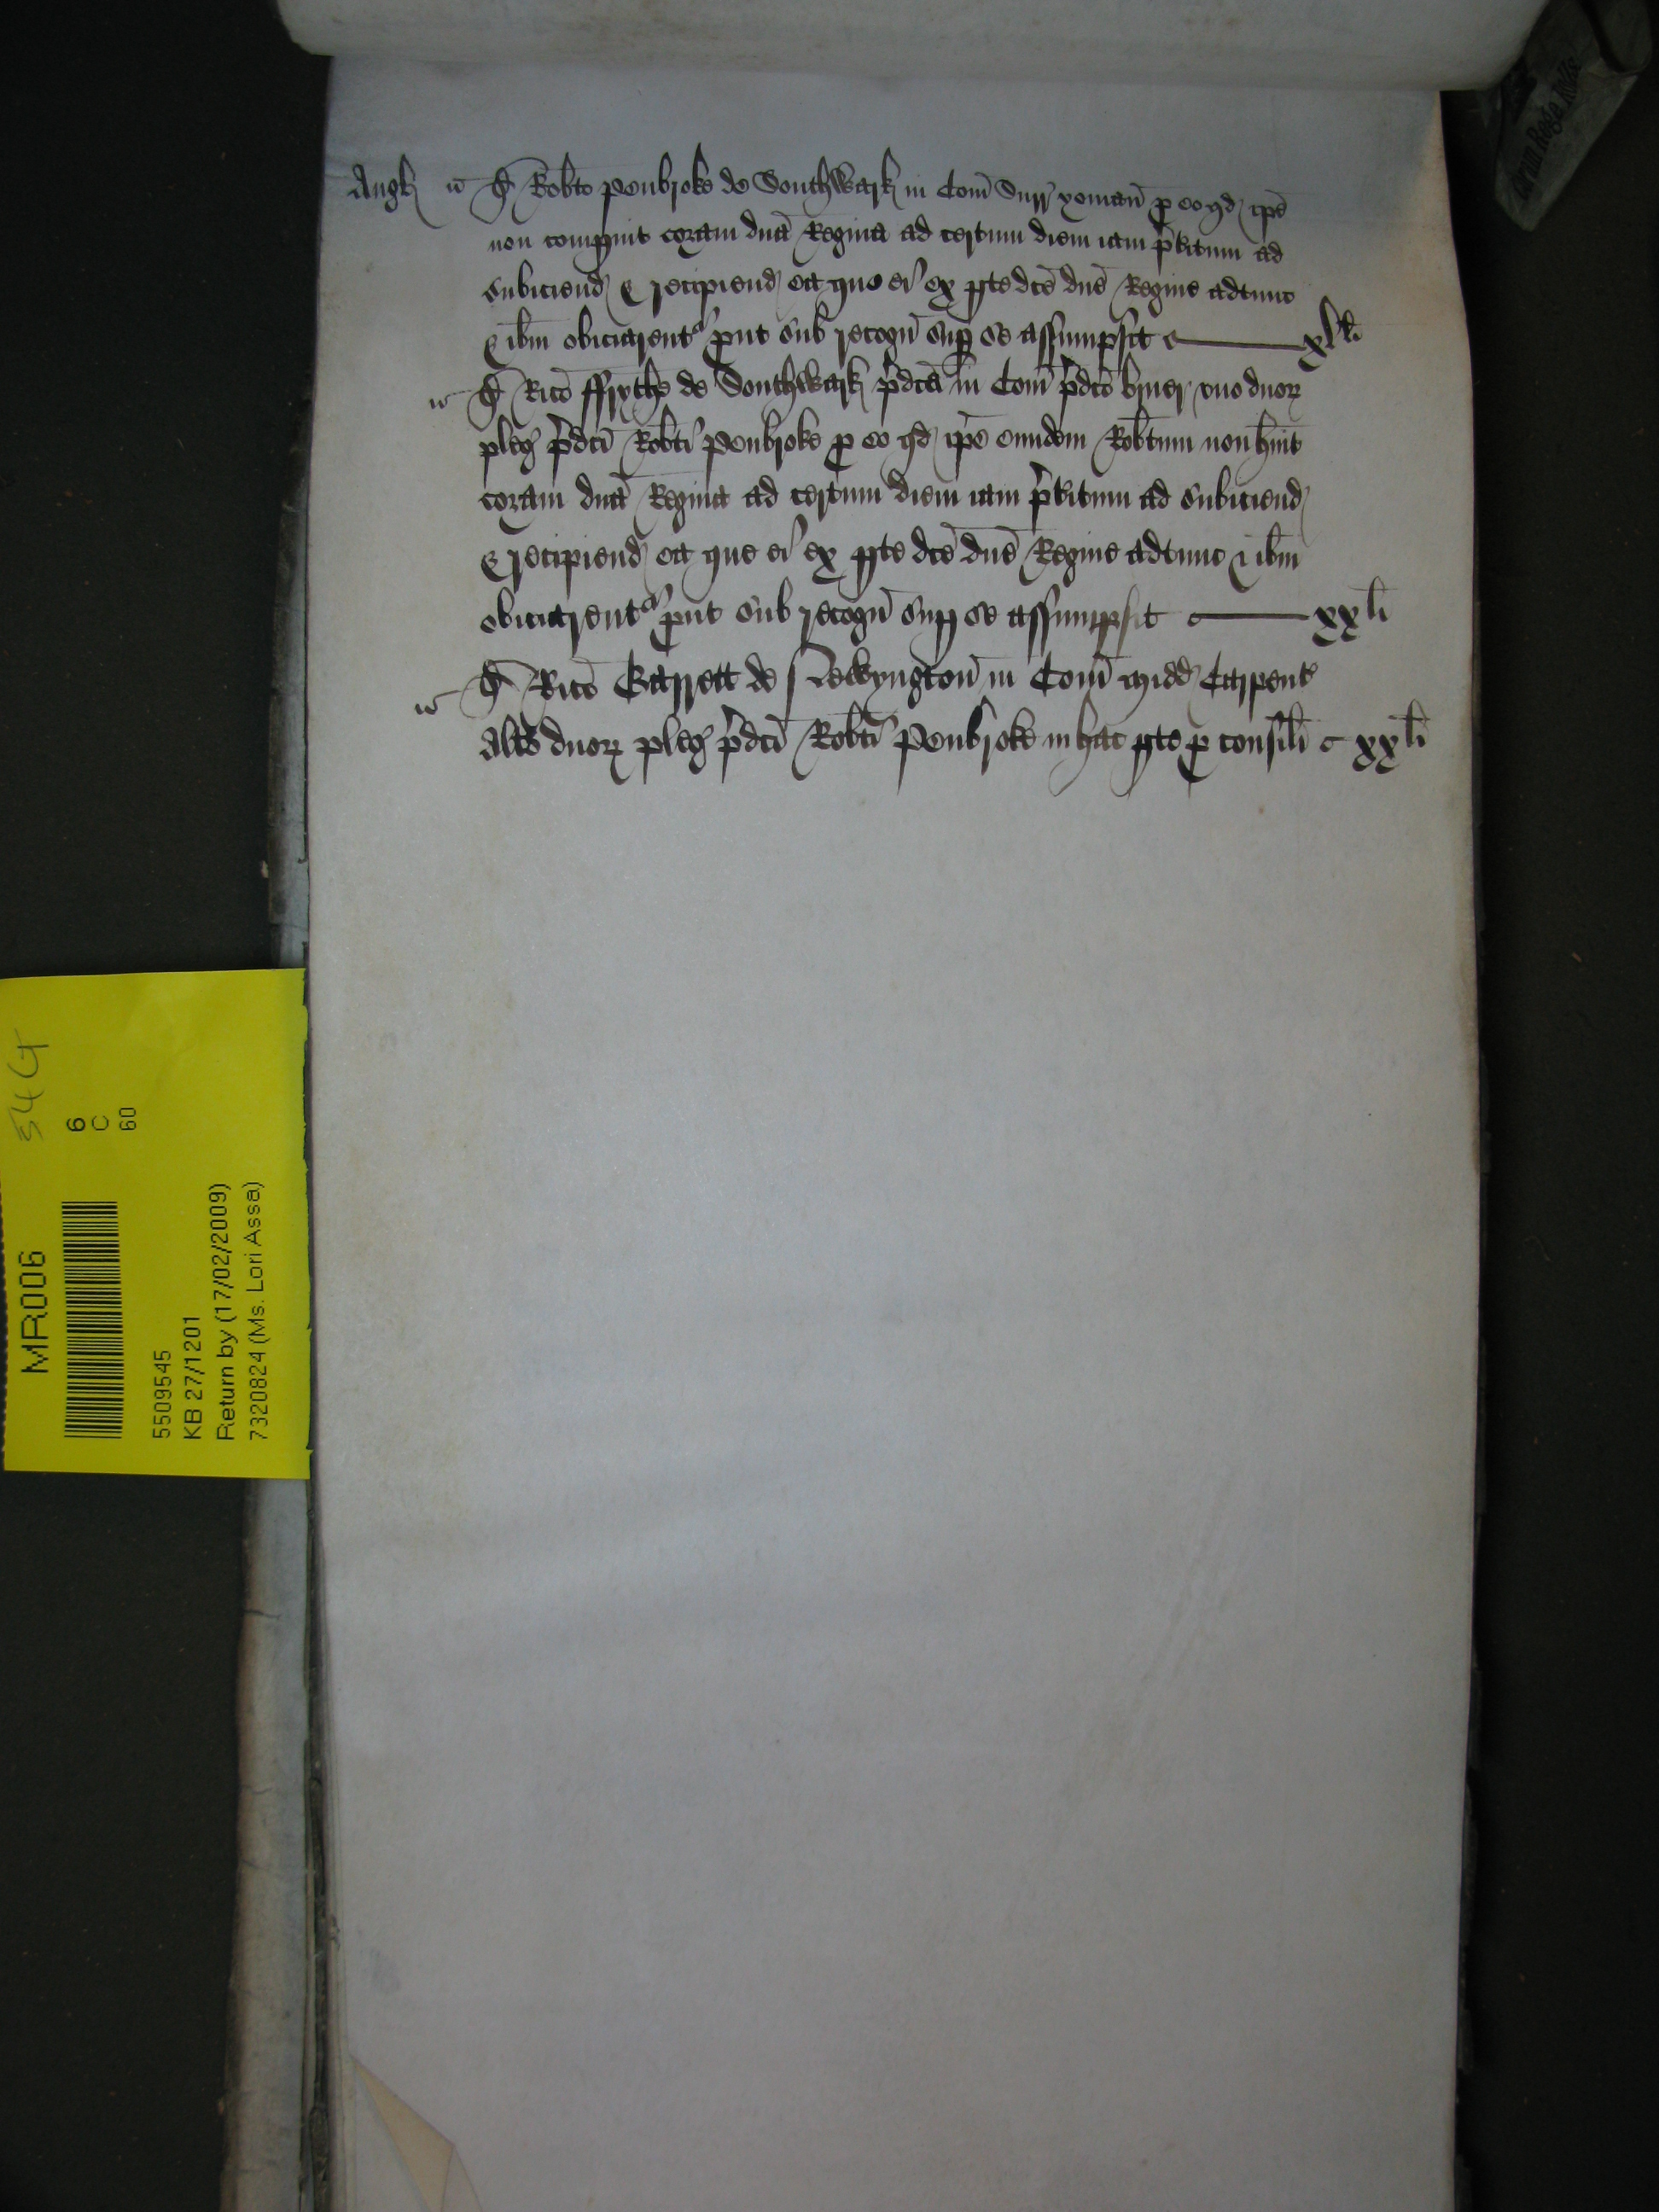 Angł m̃ đ Robto Penbroke de Southwerk in Com̃ Surr yoman̄ p eo qd ip̄e
non compuit coram dnā Regina ad certum diem iam p̄titum ad
subiciend & recipiend ea que ei ex pte dc̄e dn̄e Regine adtunc
& ib̄m obicientʳ put sub recogn̄ sup se assumpsit xl li
m̃ đ Ric̄o ffrythe de Southwerk p̄dc̄a in Com̄ p̄dc̄o bruer uno duoꝝ
pleg p̄dc̄i Robti Penbroke p eo qd ip̄e eundem Robtum non h̄uit
coram dnā Regina ad certum diem iam p̄titum ad subiciend
& recipiend ea que ei ex pte dc̄e dn̄e Regine adtunc & ib̄m
obicientʳ put sub recogn̄ sup se assumpsit xx li
m̃ đ Ric̄o Garrett de Newyngton̄ in Com̄ Midd Carpent
Alto duoꝝ pleg p̄dc̄i Robti Penbroke in hac pte p consil̄i xx li
MR006
54G
6
C
60
5509545
KB 27/1201
Return by (17/02/2009)
7320824 (Ms. Lori Assa)
Coram Rege Rolls